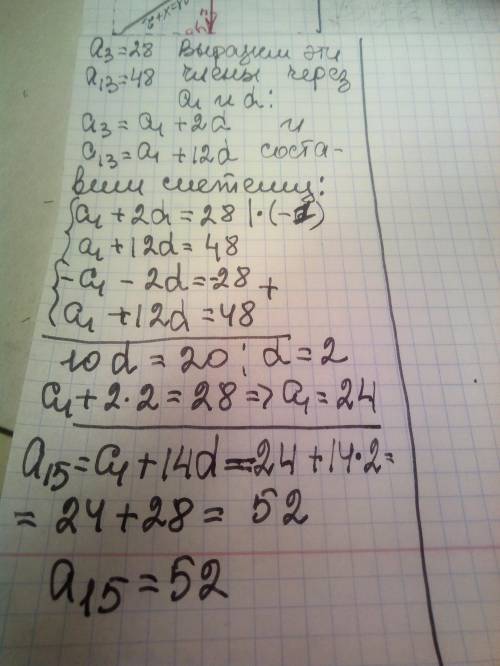 a₃=28 Выразим эти
a₁₃=48 члены через
a₁ и d:
a₃=a₁+2d и
a₁₃=a₁+12d соста-
вим систему:
{a₁+2d=28 |·(-1)
a₁+12d=48
{-a₁-2d=-28 +
a₁+12d=48
10d=20; d=2
a₁+2·2=28=>a₁=24
a₁₅=a₁+14d=24+14·2=
=24+28=52
a₁₅=52